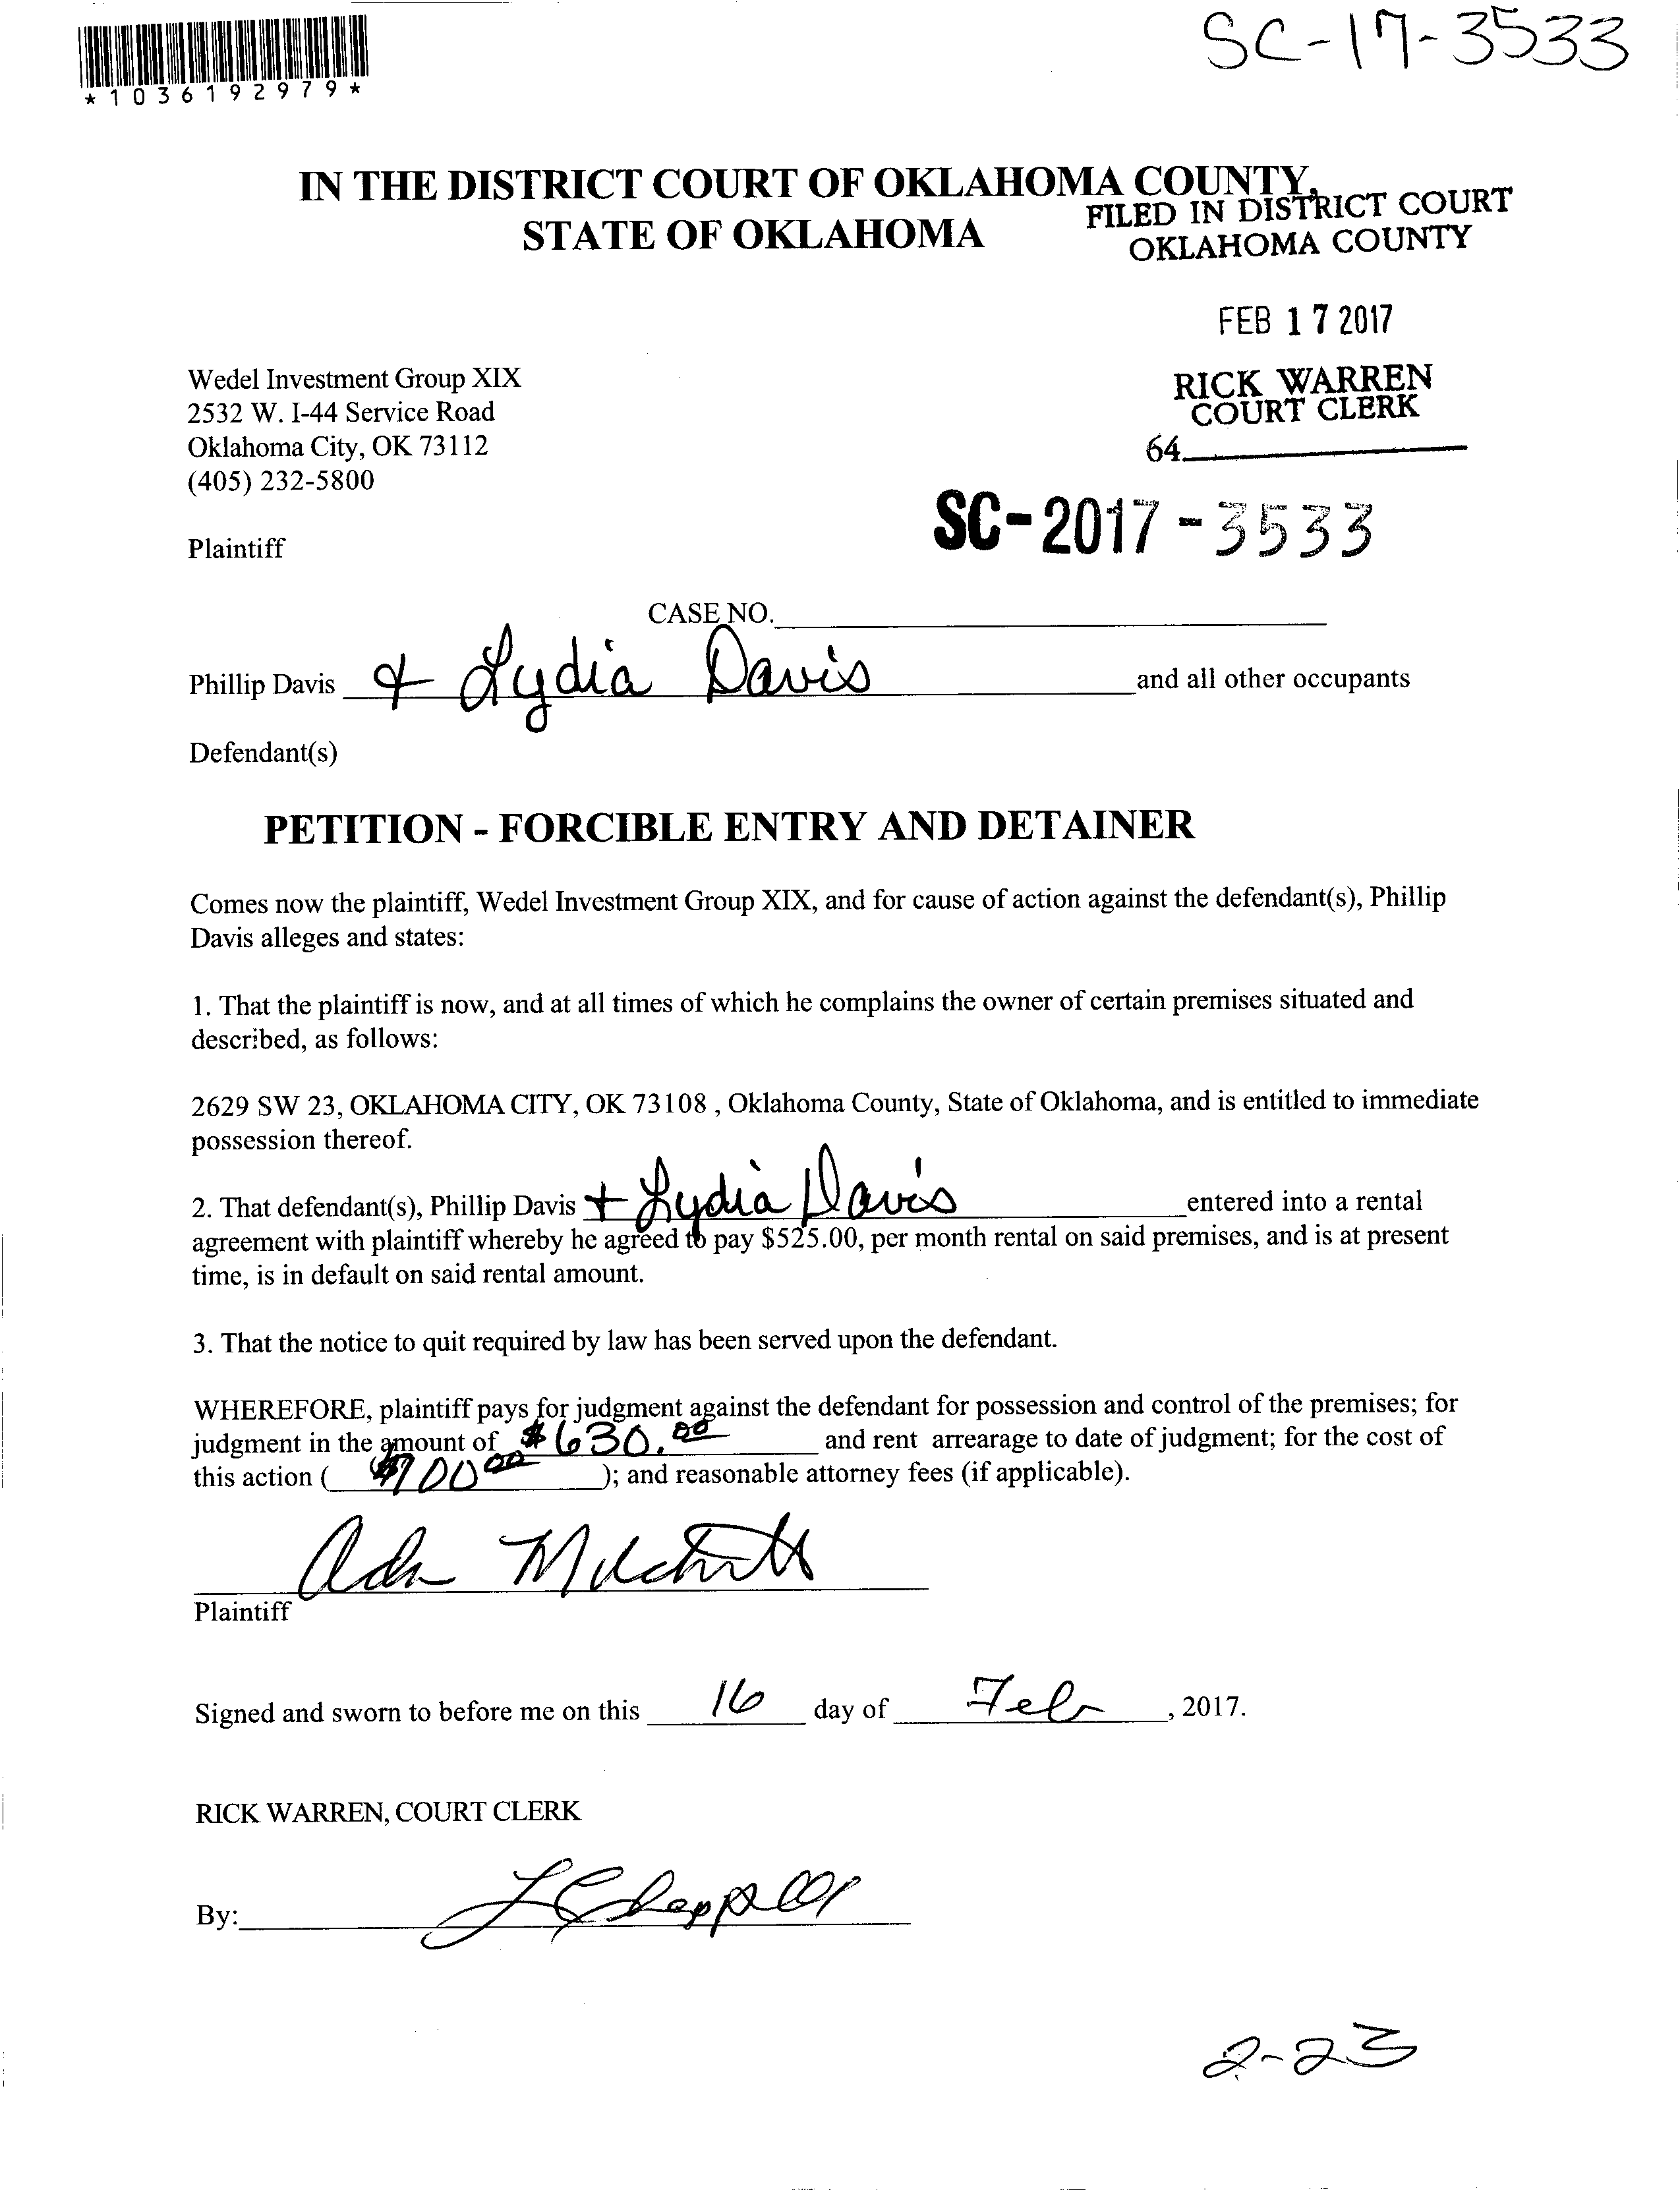 SC-17-3533
*1036192979*
IN THE DISTRICT COURT OF OKLAHOMA COUNTY,
STATE OF OKLAHOMA
FILED IN DISTRICT COURT
OKLAHOMA COUNTY
FEB 17 2017
RICK WARREN
COURT CLERK
64
Wedel Investment Group XIX
2532 W. I-44 Service Road
Oklahoma City, OK 73112
(405) 232-5800
SC-2017-3533
Plaintiff
CASE NO.
Phillip Davis & Lydia Davis and all other occupants
Defendant(s)
PETITION - FORCIBLE ENTRY AND DETAINER
Comes now the plaintiff, Wedel Investment Group XIX, and for cause of action against the defendant(s), Phillip
Davis alleges and states:
1. That the plaintiff is now, and at all times of which he complains the owner of certain premises situated and
described, as follows:
2629 SW 23, OKLAHOMA CITY, OK 73108 , Oklahoma County, State of Oklahoma, and is entitled to immediate
possession thereof.
2. That defendant(s), Phillip Davis + Lydia Davis entered into a rental
agreement with plaintiff whereby he agreed to pay $525.00, per month rental on said premises, and is at present
time, is in default on said rental amount.
3. That the notice to quit required by law has been served upon the defendant.
WHEREFORE, plaintiff pays for judgment against the defendant for possession and control of the premises; for
judgment in the amount of $630.00 and rent arrearage to date of judgment; for the cost of
this action ( ); and reasonable attorney fees (if applicable).
Plaintiff
Signed and sworn to before me on this 16 day of Feb, 2017.
RICK WARREN, COURT CLERK
By:
2-23